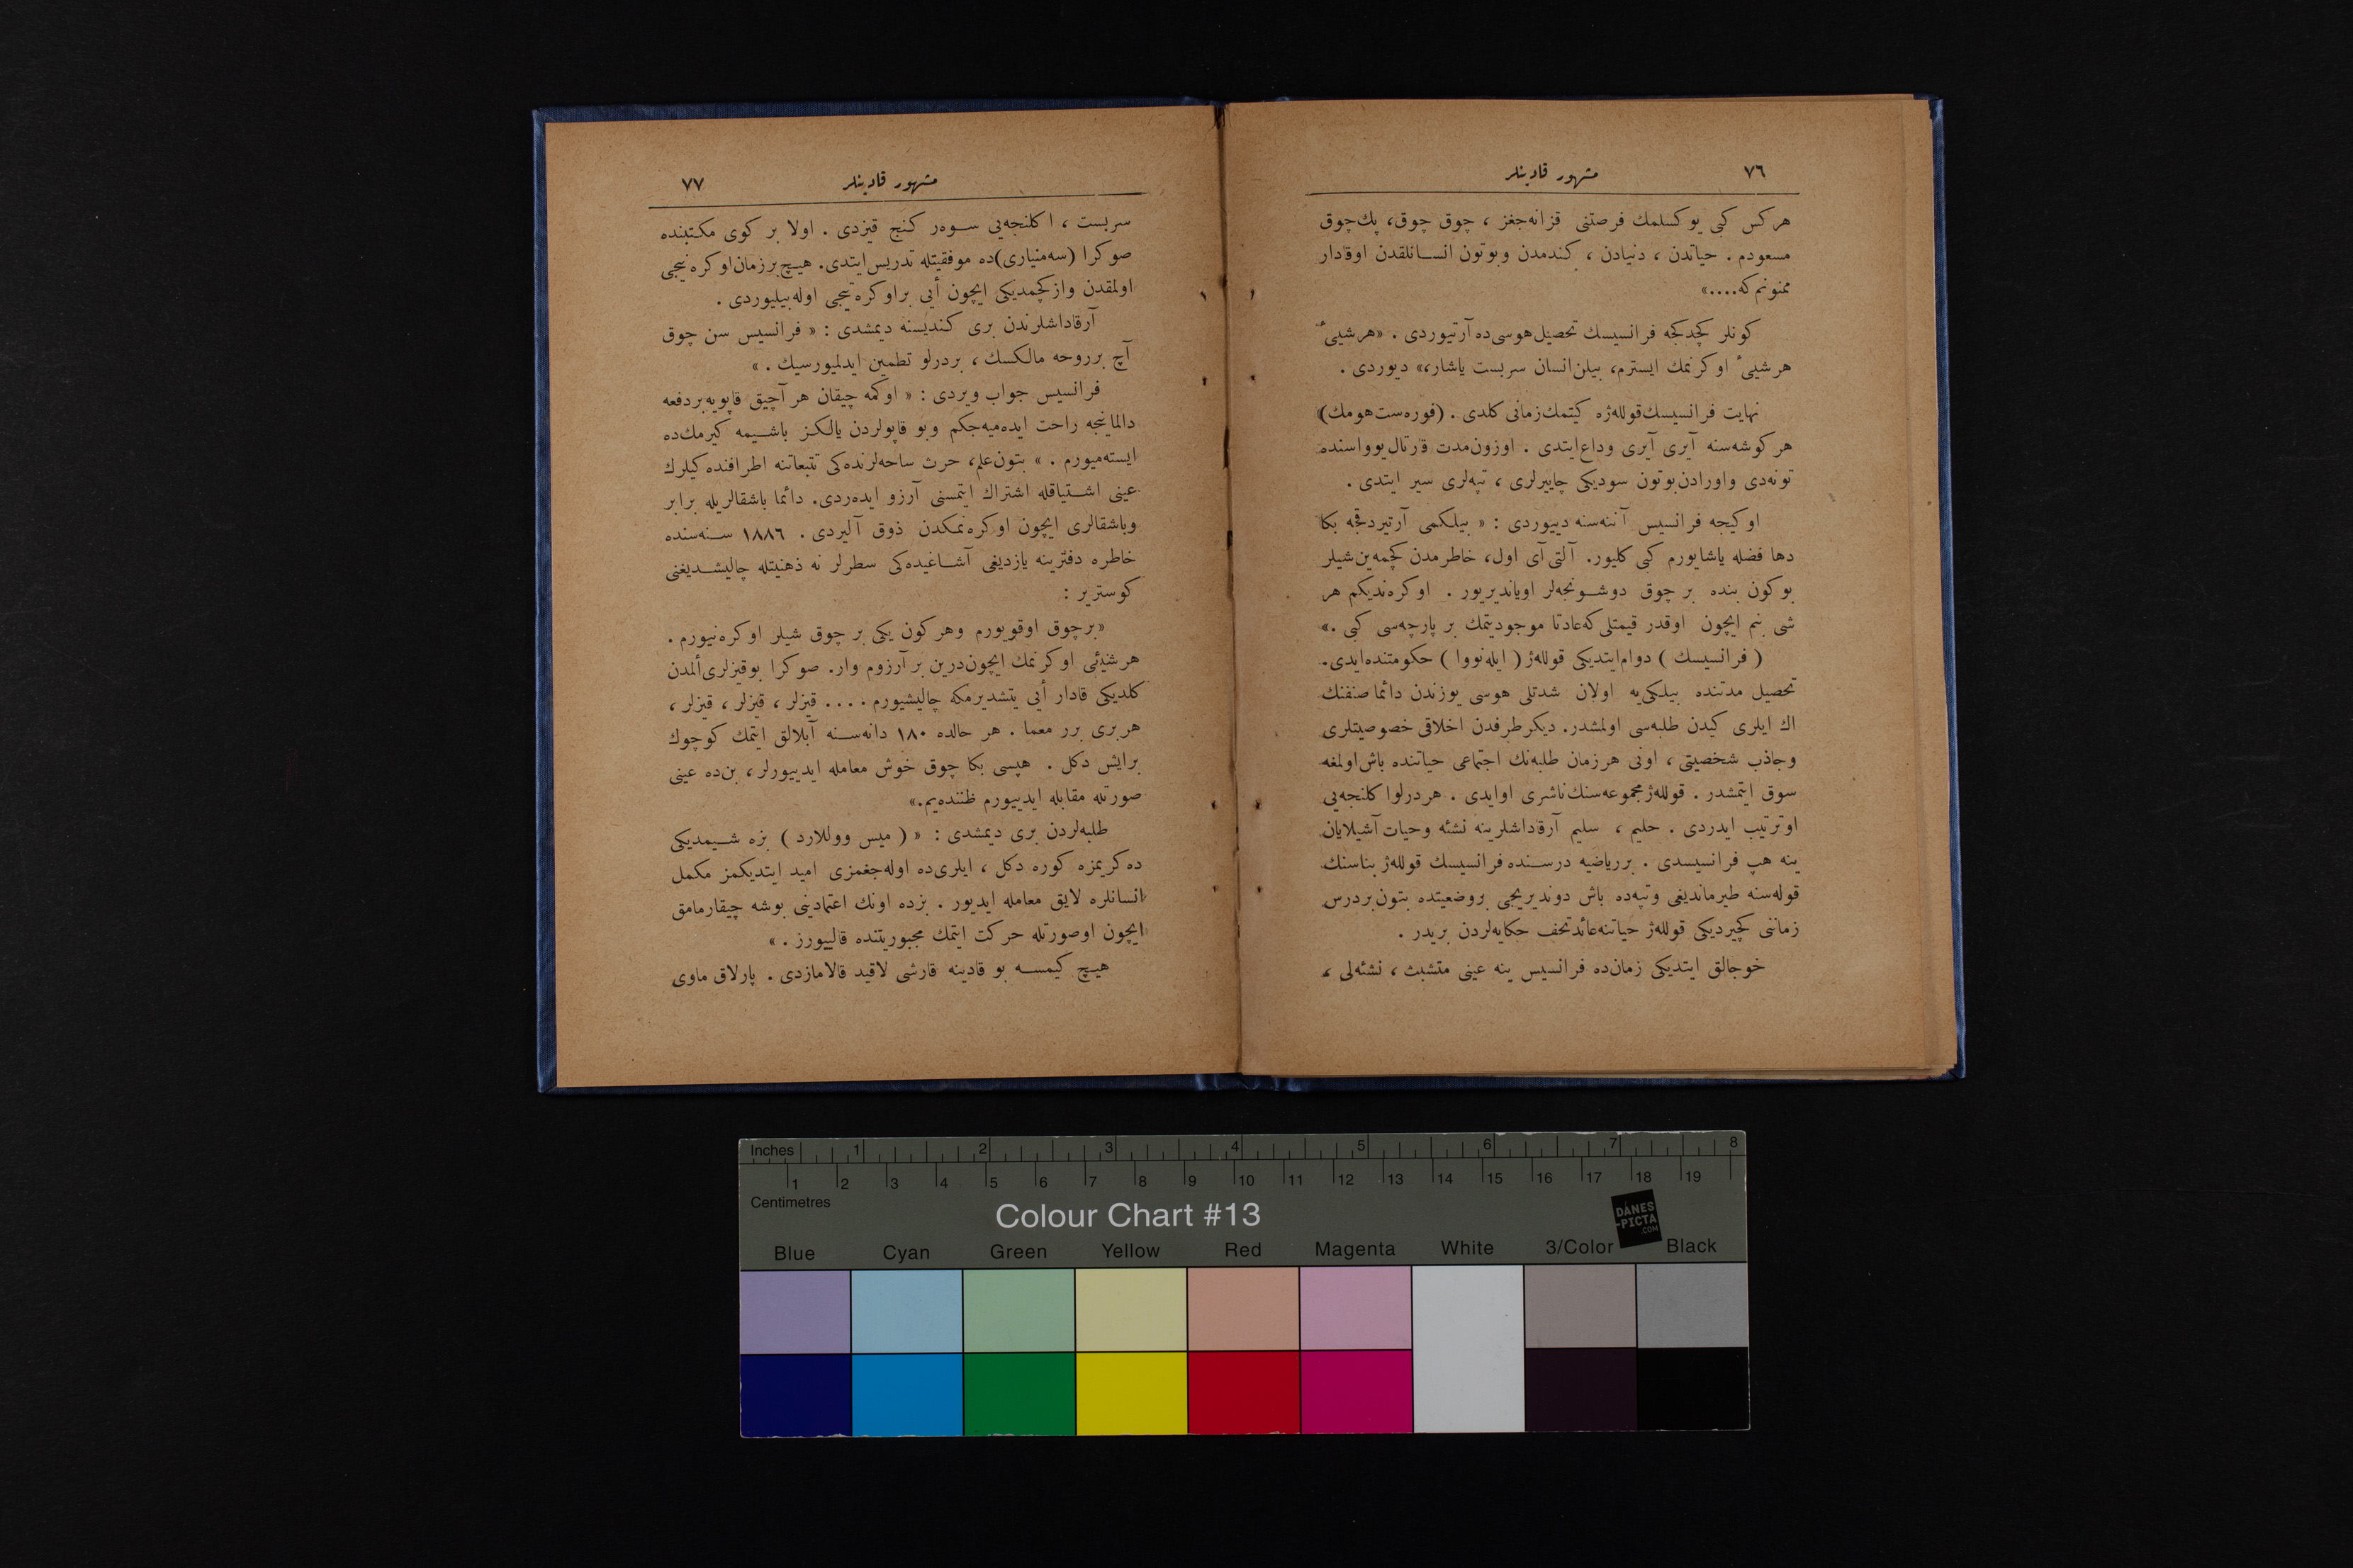 ٧٦
مشهور قادينلر
هركس كبى يوكسلمك فرصتنى قزانه‌جغز ، چوق چوق، پك چوق
مسعودم . حياتدن ، دنيادن ، كندمدن وبوتون انسانلقدن اوقادار
ممنونم كه....»
كونلر كچدكجه فرانسيسك تحصيل هوسى ده آرتيوردى . «هرشيئ
هرشيئ اوكرنمك ايسترم، بيلن انسان سربست ياشار،» ديوردى .
نهايت فرانسيسك قولله‌ژه كيتمك زمانى كلدى . (فوره‌ست هومك)
هر كوشه‌سنه آيرى آيرى وداع ايتدى . اوزون مدت قارتال يوواسنده
تونه‌دى واورادن بوتون سوديكى چاييرلرى ، تپه‌لرى سير ايتدى .
اوكيجه فرانسيس آننه‌سنه دييوردى : « بيلكمى آرتيردقجه بكا
دها فضله ياشايورم كبى كليور. آلتى آى اول، خاطرمدن كچمه‌ين شيلر
بوكون بنده بر چوق دوشونجه‌لر اويانديريور . اوكره‌نديكم هر
شى بنم ايچون اوقدر قيمتلى كه عادتا موجوديتمك بر پارچه‌سى كبى .»
( فرانسيسك ) دوام ايتديكى قولله‌ژ ( ايله‌نووا ) حكومتنده ايدى.
تحصيل مدتنده بيلكى‌يه اولان شدتلى هوسى يوزندن دائما صنفنك
اك ايلرى كيدن طلبه‌سى اولمشدر. ديكر طرفدن اخلاقى خصوصيتلرى
وجاذب شخصيتى ، اونى هر زمان طلبه‌نك اجتماعى حياتنده باش اولمغه
سوق ايتمشدر . قولله‌ژ مجموعه‌سنك ناشرى اوايدى . هر درلو اكلنجه‌يى
او ترتيب ايدردى . حليم ، سليم آرقاداشلرينه نشئه وحيات آشيلايان
ينه هپ فرانسيسدى . بر رياضيه درسنده فرانسيسك قولله‌ژ بناسنك
قوله‌سنه طيرمانديغى وتپه‌ده باش دونديريجى بر وضعيتده بتون بر درس
زماننى كچيرديكى قولله‌ژ حياتنه عائد تحف حكايه‌لردن بريدر .
خوجالق ايتديكى زمان ده فرانسيس ينه عينى متشبث ، نشئه‌لى ،
مشهور قادينلر
٧٧
سربست ، اكلنجه‌يى سوه‌ر كنج قيزدى . اولا بر كوى مكتبنده
صوكرا (سه‌منيارى)ده موفقيتله تدريس ايتدى. هيچ بر زمان اوكره‌نيجى
اولمقدن وازكچمديكى ايچون أيى بر اوكره‌تيجى اوله‌بيليوردى .
آرقاداشلرندن برى كنديسنه ديمشدى : « فرانسيس سن چوق
آچ بر روحه مالكسك ، بر درلو تطمين ايدلميورسيك . »
فرانسيس جواب ويردى : « اوكمه چيقان هر آچيق قاپويه بر دفعه
دالماينجه راحت ايده‌ميه‌جكم وبو قاپولردن يالكز باشيمه كيرمك ده
ايسته‌ميورم . » بتون علم، حرث ساحه‌لرنده‌كى تتبعاتنه اطرافنده كيلرك
عينى اشتياقله اشتراك ايتمسنى آرزو ايده‌ردى. دائما باشقالريله برابر
وباشقالرى ايچون اوكره‌نمكدن ذوق آليردى . ١٨٨٦ سنه‌سنده
خاطره دفترينه يازديغى آشاغيده‌كى سطرلر نه ذهنيتله چاليشديغنى
كوسترير :
«برچوق اوقويورم وهر كون يكى بر چوق شيلر اوكره‌نيورم .
هر شيئى اوكرنمك ايچون درين بر آرزوم وار. صوكرا بو قيزلرى ألمدن
كلديكى قادار أيى يتشديرمكه چاليشيورم .... قيزلر ، قيزلر ، قيزلر ،
هر برى برر معما . هر حالده ١٨٠ دانه‌سنه آبلالق ايتمك كوچوك
بر ايش دكل . هپسى بكا چوق خوش معامله ايدييورلر، بن ده عينى
صورتله مقابله ايدييورم ظننده‌يم.»
طلبه‌لردن برى ديمشدى : « ( ميس ووللارد ) بزه شيمديكى
ده‌كريمزه كوره دكل ، ايلرى‌ده اوله‌جغمزى اميد ايتديكمز مكمل
انسانلره لايق معامله ايديور . بزده اونك اعتمادينى بوشه چيقارمامق
ايچون اوصورتله حركت ايتمك مجبوريتنده قالييورز . »
هيچ كيمسه بو قادينه قارشى لاقيد قالامازدى . پارلاق ماوى
Inches 1 2 3 4 5 6 7 8
1 2 3 4 5 6 7 8 9 10 11 12 13 14 15 16 17 18 19
Centimetres
Colour Chart #13
DANES
-PICTA
.COM
Blue Cyan Green Yellow Red Magenta White 3/Color Black